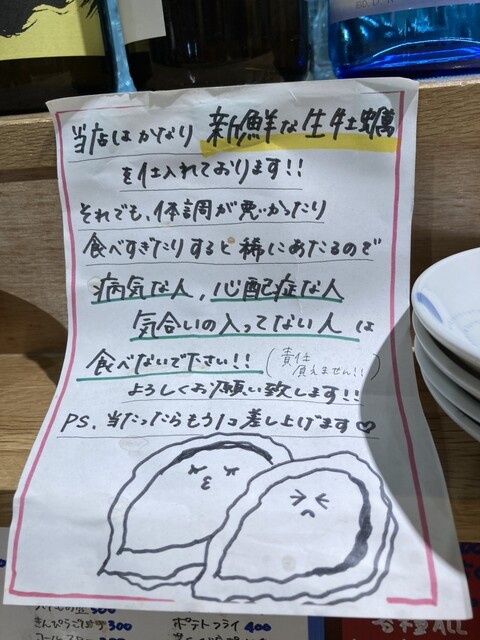 当店はかなり新鮮な生牡蠣
を仕入れております!!
それでも、体調が悪かったり
食べすぎたりすると稀にあたるので
病気な人、心配症な人
気合いの入ってない人は
食べないで下さい!!(責任負えません!!)
よろしくお願い致します!!
PS.当たったらもう1コ差し上げます♡
300
ポテトフライ 400
各種ALL